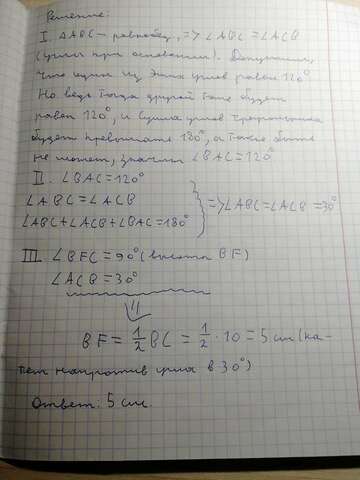 Решение:
I. △ABC - равнобед, => ∠ABC = ∠ACB
(углы при основании). Допустим,
что один из этих углов равен 120°
Но ведь тогда другой тоже будет
равен 120°, и сумма углов треугольника
будет превышать 180°, а такое быть
не может, значит ∠BAC = 120°
II. ∠BAC = 120°
∠ABC = ∠ACB
∠ABC + ∠ACB + ∠BAC = 180° => ∠ABC = ∠ACB = 30°
III. ∠BFC = 90° (высота BF)
∠ACB = 30°
BF = 1/2 BC = 1/2 · 10 = 5 см (ка-
тет напротив угла в 30°)
Ответ: 5 см.